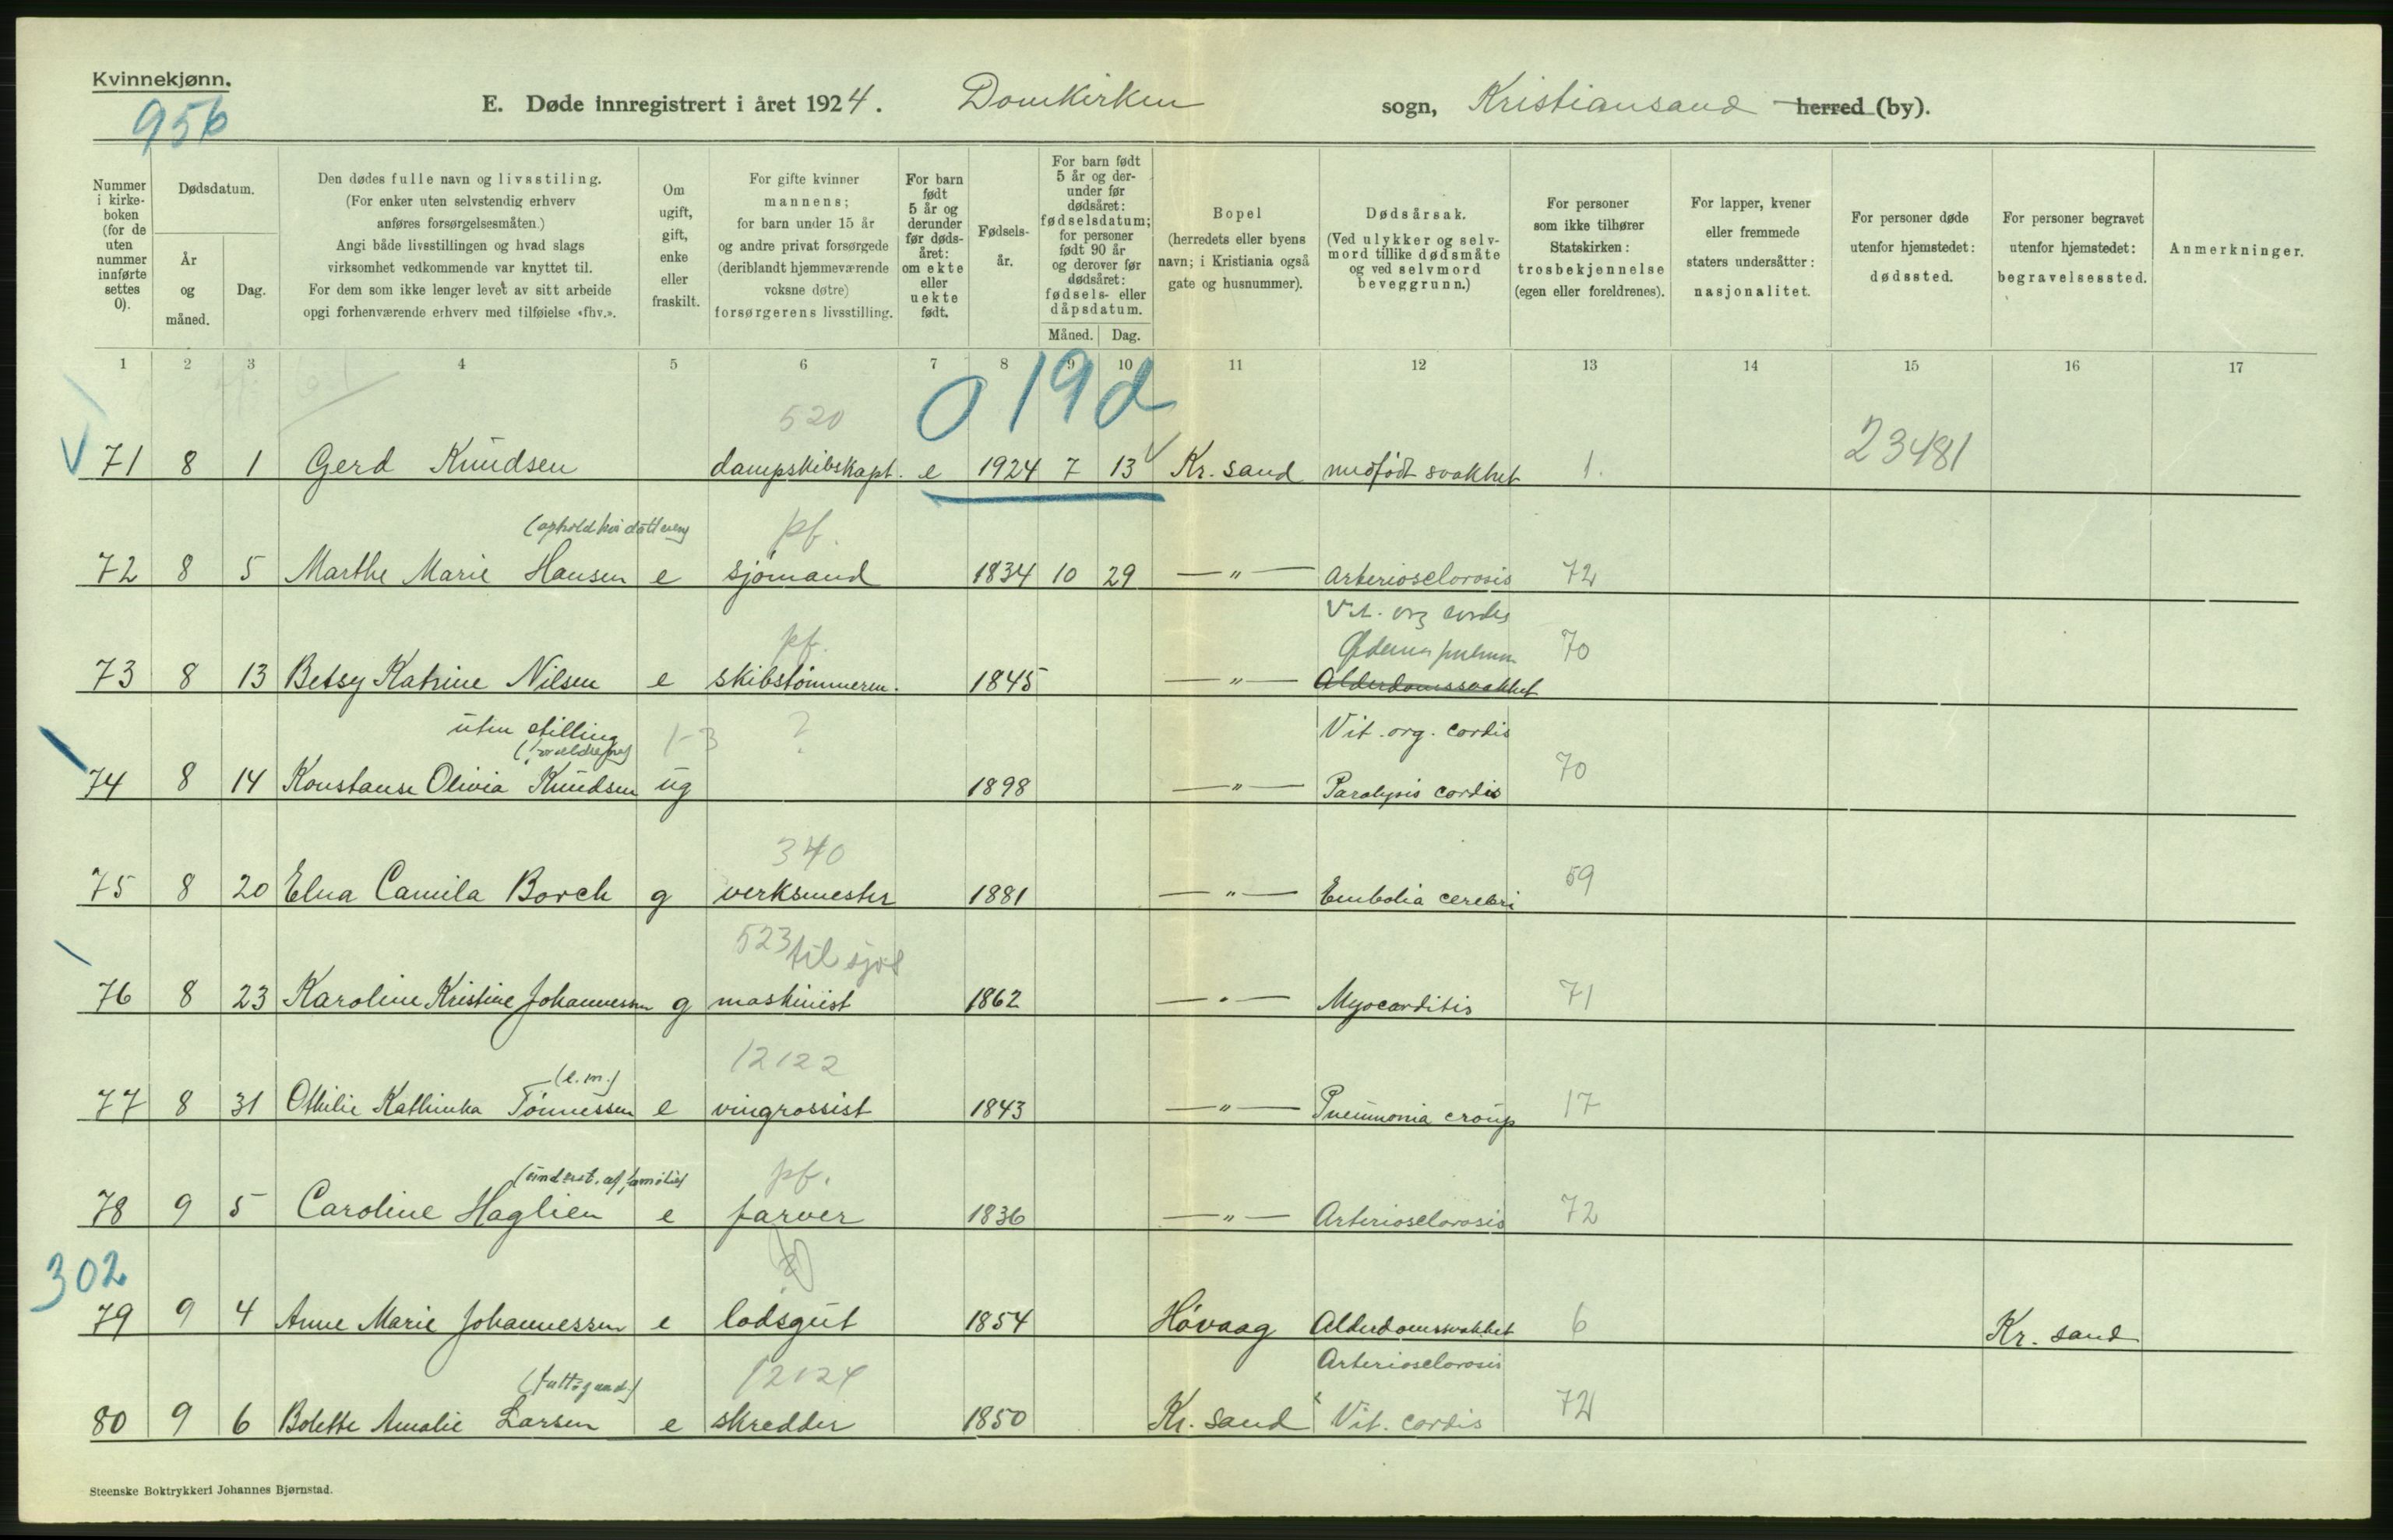 Kvinnekjønn.
956
E. Døde innregistrert i året 1924. Domkirken sogn, Kristiansand herred (by).
Nummer i kirkeboken (for de uten nummer innførte settes 0).
Dødsdatum.
År og måned.
Dag.
Den dødes fulle navn og livsstiling.
(For enker uten selvstendig erhverv
anføres forsørgelsesmåten.)
Angi både livsstillingen og hvad slags
virksomhet vedkommende var knyttet til.
For dem som ikke lenger levet av sitt arbeide
opgi forhenværende erhverv med tilføielse «fhv.».
Om ugift, gift, enke eller fraskilt.
For gifte kvinner
mannens;
for barn under 15 år
og andre privat forsørgede
(deriblandt hjemmeværende
voksne døtre)
forsørgerens livsstilling.
For barn født 5 år og derunder før dødsåret: om ekte eller uekte født.
Fødselsår.
For barn født 5 år og derunder før dødsåret: fødselsdatum; for personer født 90 år og derover før dødsåret: fødsels- eller dåpsdatum.
Måned. Dag.
Bopel
(herredets eller byens
navn; i Kristiania også
gate og husnummer).
Dødsårsak.
(Ved ulykker og selvmord tillike dødsmåte og ved selvmord beveggrunn.)
For personer
som ikke tilhører
Statskirken:
trosbekjennelse
(egen eller foreldrenes).
For lapper, kvener
eller fremmede
staters undersåtter:
nasjonalitet.
For personer døde
utenfor hjemstedet:
dødssted.
For personer begravet
utenfor hjemstedet:
begravelsessted.
Anmerkninger.
1 2 3 4 5 6 7 8 9 10 11 12 13 14 15 16 17
019d
520
71 8 1 Gerd Knudsen dampskibskapt. e 1924 7 13 Kr. sand medfødt svakhet 1. 23481
(ophold hos datteren) pf.
72 8 5 Marthe Marie Hansen e sjømand 1834 10 29 —"— Arteriosclorosis 72
Vit. org cordis
pf. Ødema pulmon 70
73 8 13 Betsy Katrine Nilsen e skibstømmerm. 1845 —"— Alderdomssvakhet
uten stilling 1-3 ? Vit. org. cordis
74 8 14 Konstanse Olivia Knudsen ug 1898 —"— Paralysis cordis 70
340
75 8 20 Elna Camila Borch g verksmester 1881 —"— Embolia cerebri 59
523 til sjøs
76 8 23 Karoline Kristine Johannessen g maskinist 1862 —"— Myocarditis 71
(e.m.) 12122
77 8 31 Othilie Kathinka Tønnessen e vingrossist 1843 —"— Pneumonia croup 17
(underst. af familie) pf.
78 9 5 Caroline Haglien e farver 1836 —"— Arteriosclorosis 72
302
79 9 4 Anne Marie Johannessen e lodsgut 1854 Høvaag Alderdomssvakhet 6 Kr. sand
(fattigund.) 12124 Arteriosclorosis
80 9 6 Bolette Amalie Larsen e skredder 1850 Kr. sand Vit. cordis 72
Steenske Boktrykkeri Johannes Bjørnstad.